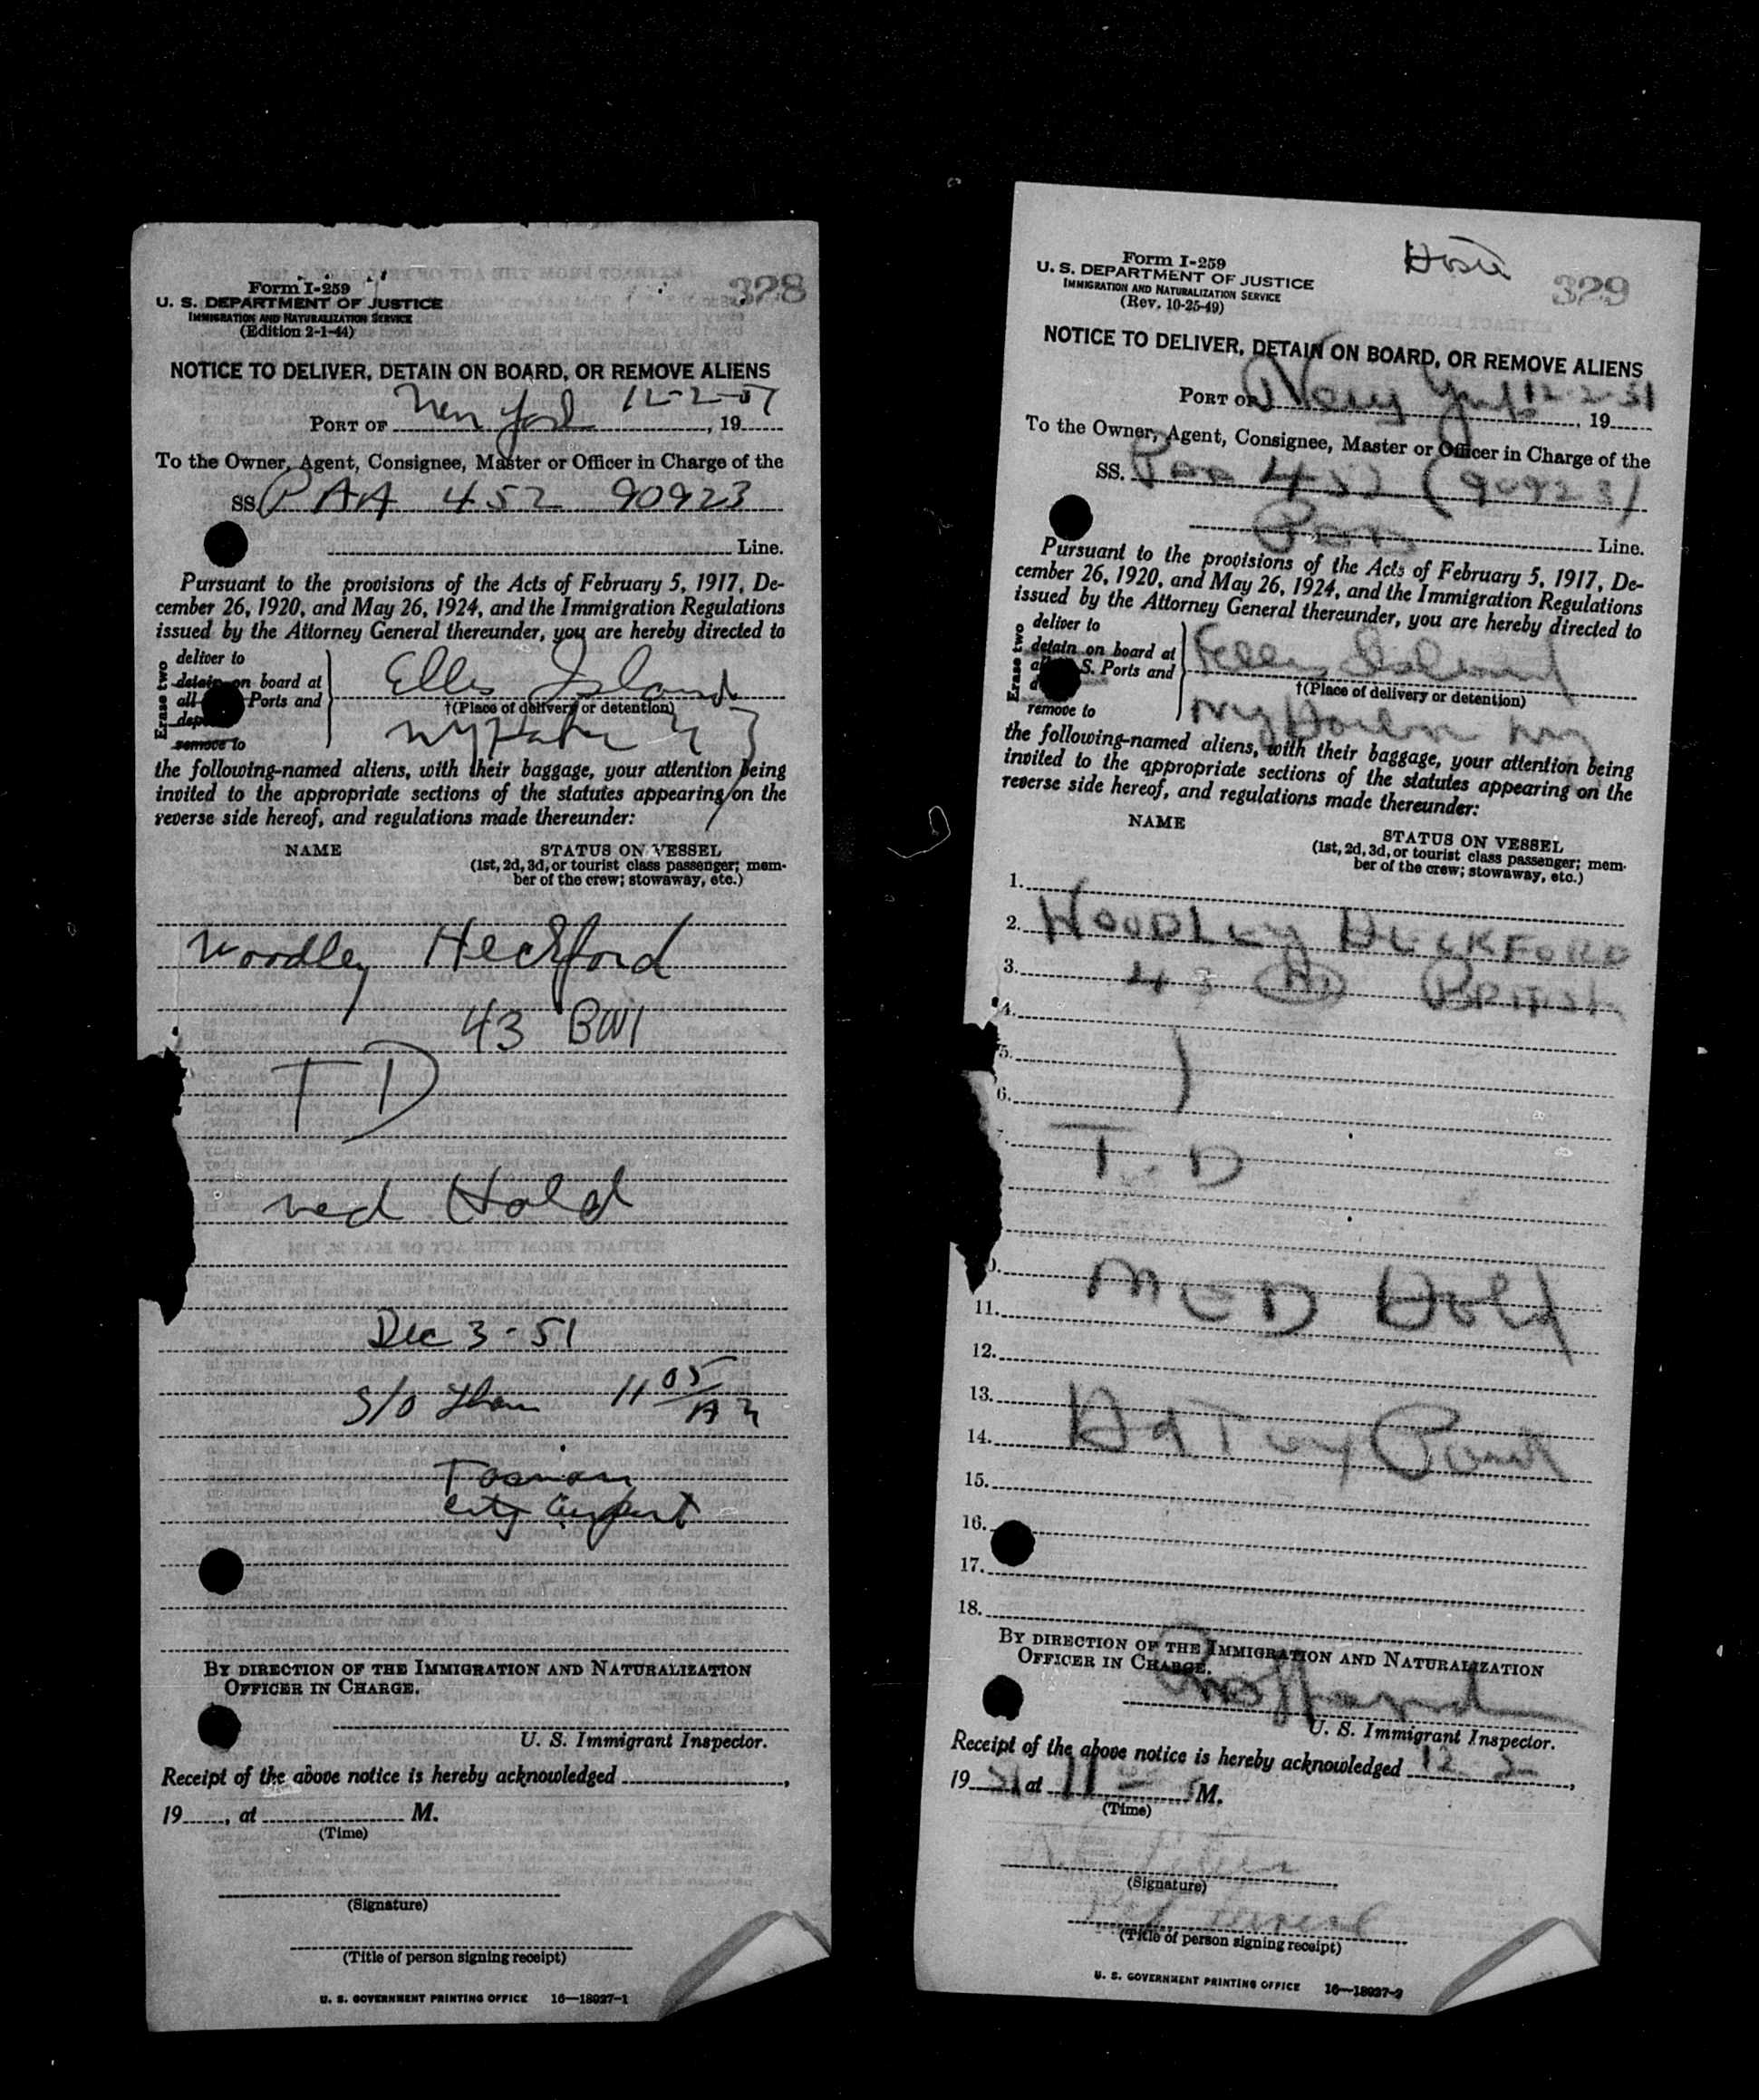 328
Form I-259
U. S. DEPARTMENT OF JUSTICE
IMMIGRATION AND NATURALIZATION SERVICE
(Edition 2-1-44)
NOTICE TO DELIVER, DETAIN ON BOARD, OR REMOVE ALIENS
PORT OF New York 12-2-51, 19
To the Owner, Agent, Consignee, Master or Officer in Charge of the
SS. PAA 452 90923
Line.
Pursuant to the provisions of the Acts of February 5, 1917, De-
cember 26, 1920, and May 26, 1924, and the Immigration Regulations
issued by the Attorney General thereunder, you are hereby directed to
Erase two
deliver to
detain on board at
all Ports and
remove to
Ellis Island
†(Place of delivery or detention)
NY Harbor NY
the following-named aliens, with their baggage, your attention being
invited to the appropriate sections of the statutes appearing on the
reverse side hereof, and regulations made thereunder:
NAME STATUS ON VESSEL
(1st, 2d, 3d, or tourist class passenger; mem-
ber of the crew; stowaway, etc.)
Woodley Heckford
43 BWI
T D
Med Hold
Dec 3 - 51
S/O 11 05 AM
City Airport
BY DIRECTION OF THE IMMIGRATION AND NATURALIZATION
OFFICER IN CHARGE.
U. S. Immigrant Inspector.
Receipt of the above notice is hereby acknowledged ,
19 , at M.
(Time)
(Signature)
(Title of person signing receipt)
U. S. GOVERNMENT PRINTING OFFICE 16—18027-1
329
Form I-259
U. S. DEPARTMENT OF JUSTICE
IMMIGRATION AND NATURALIZATION SERVICE
(Rev. 10-25-49)
NOTICE TO DELIVER, DETAIN ON BOARD, OR REMOVE ALIENS
PORT OF New York 12-2-51, 19
To the Owner, Agent, Consignee, Master or Officer in Charge of the
SS. Paa 452 (90923)
Line.
Pursuant to the provisions of the Acts of February 5, 1917, De-
cember 26, 1920, and May 26, 1924, and the Immigration Regulations
issued by the Attorney General thereunder, you are hereby directed to
Erase two
deliver to
detain on board at
S. Ports and
remove to
Ellis Island
†(Place of delivery or detention)
NY Harbor NY
the following-named aliens, with their baggage, your attention being
invited to the appropriate sections of the statutes appearing on the
reverse side hereof, and regulations made thereunder:
NAME STATUS ON VESSEL
(1st, 2d, 3d, or tourist class passenger; mem-
ber of the crew; stowaway, etc.)
1.
2. WOODLEY HECKFORD
3. 43 BRITISH
4.
5.
6.
7. T.D
MED Hold
11.
12.
13.
14.
15.
16.
17.
18.
BY DIRECTION OF THE IMMIGRATION AND NATURALIZATION
OFFICER IN CHARGE.
U. S. Immigrant Inspector.
Receipt of the above notice is hereby acknowledged 12 - 2,
19 51 at 11 M.
(Time)
(Signature)
(Title of person signing receipt)
U. S. GOVERNMENT PRINTING OFFICE 16—18027-2